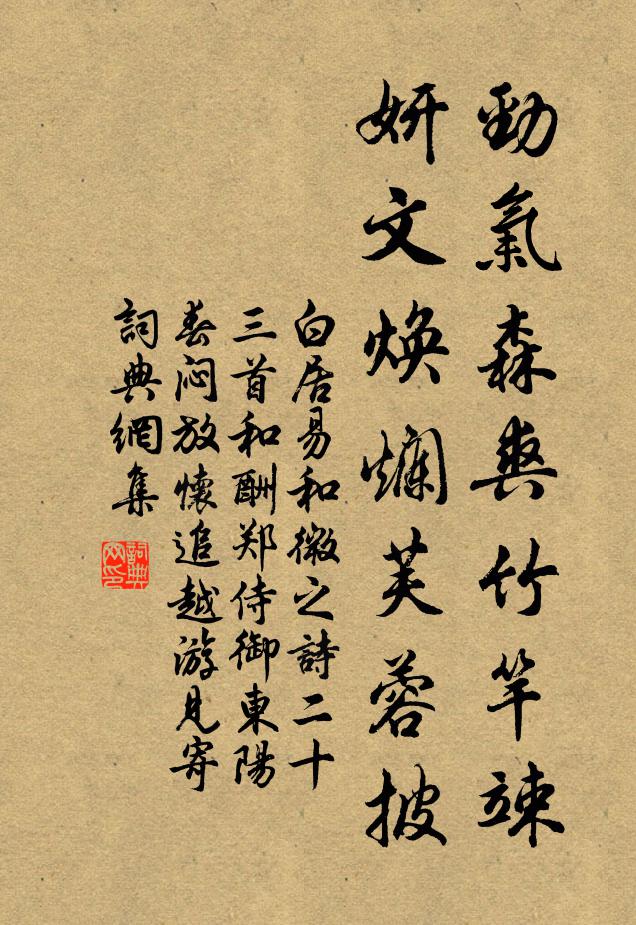 勁氣森爽竹竿竦
妍文煥爛芙蓉披
白居易和微之詩二十
三首和酬郑侍御東陽
春闷放懷追越游見寄
詞典網集
詞典
网印